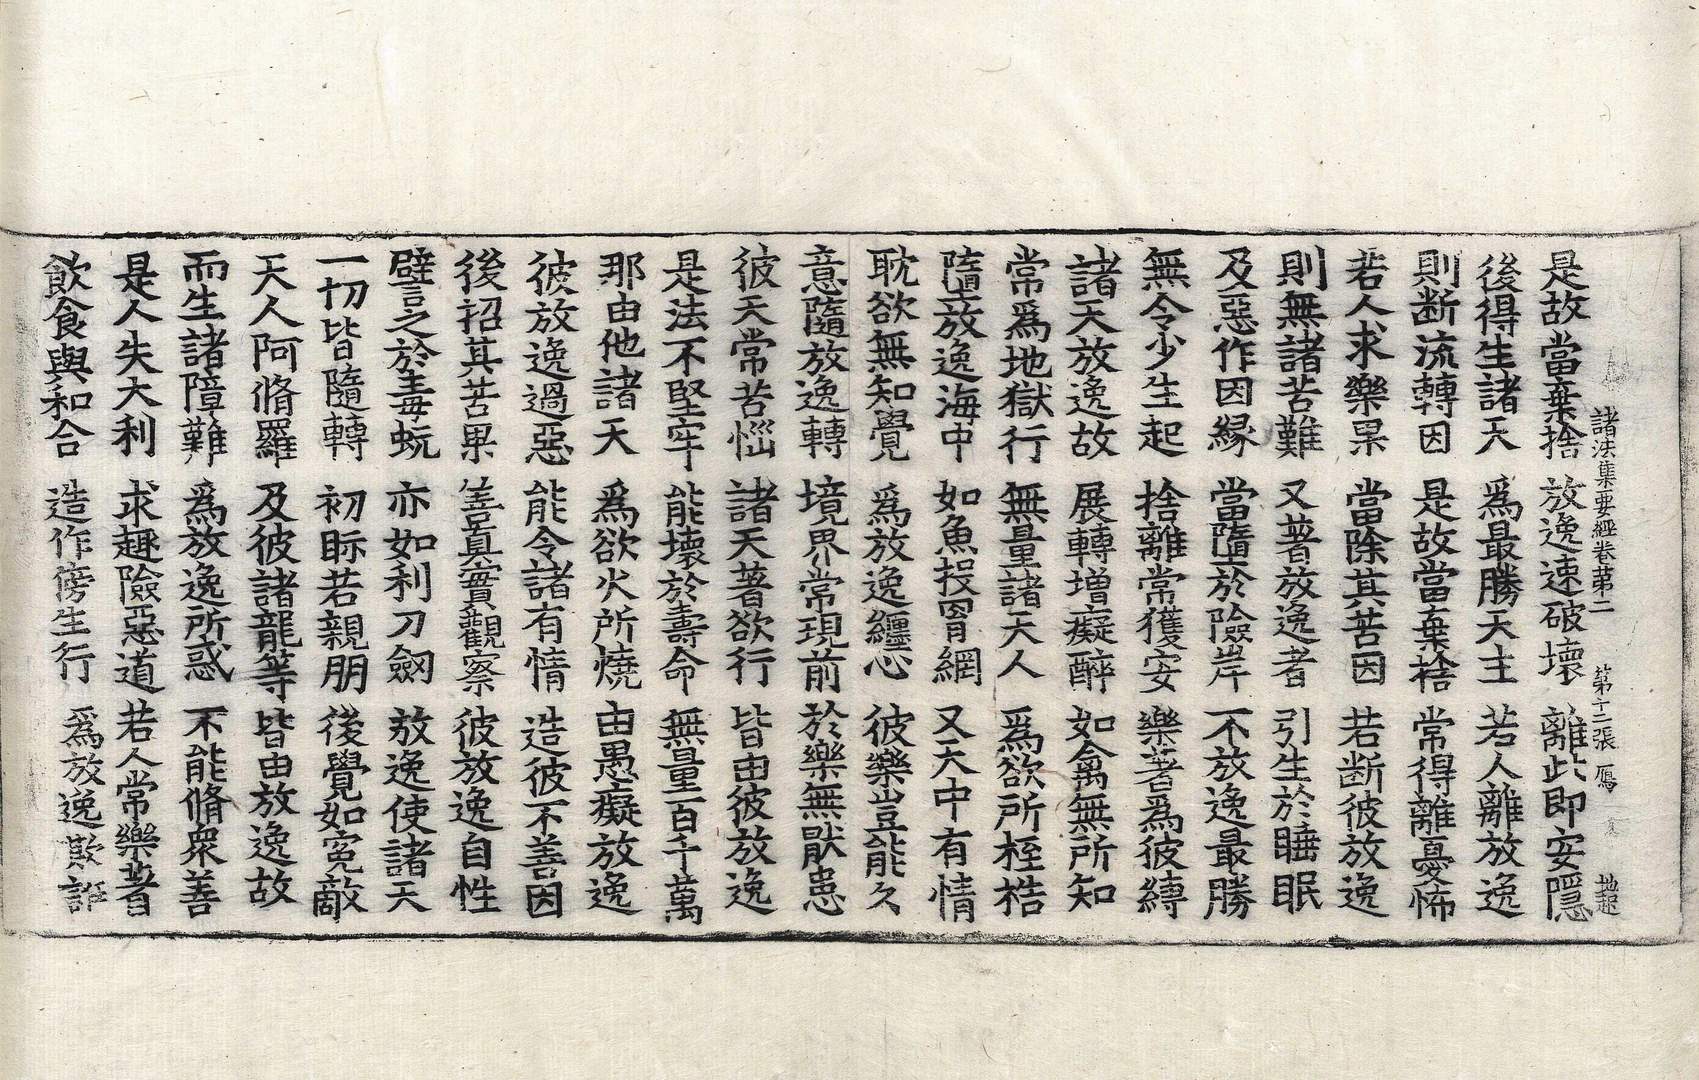 諸法集要經卷第二 第十二張 鴈
是故當棄捨 放逸速破壞 離此即安隱
後得生諸天 爲最勝天主 若人離放逸
則断流轉因 是故當棄捨 常得離憂怖
若人求樂果 當除其苦因 若断彼放逸
則無諸苦難 又著放逸者 引生於睡眠
及惡作因縁 當墮於險岸 不放逸最勝
無令少生起 捨離常獲安 樂著爲彼縛
諸天放逸故 展轉增癡醉 如禽無所知
常爲地獄行 無量諸天人 爲欲所桎梏
墮放逸海中 如魚投罥網 又天中有情
耽欲無知覺 爲放逸纏心 彼樂豈能久
意隨放逸轉 境界常現前 於樂無猒患
彼天常苦惱 諸天著欲行 皆由彼放逸
是法不堅牢 能壞於壽命 無量百千萬
那由他諸天 爲欲火所燒 由愚癡放逸
彼放逸過惡 能令諸有情 造彼不善因
後招其苦果 善眞實觀察 彼放逸自性
譬之於毒蚖 亦如利刀劔 放逸使諸天
一切皆隨轉 初眎若親朋 後覺如寃敵
天人阿脩羅 及彼諸龍等 皆由放逸故
而生諸障難 爲放逸所惑 不能脩衆善
是人失大利 求趣險惡道 若人常樂著
飲食與和合 造作傍生行 爲放逸欺誑